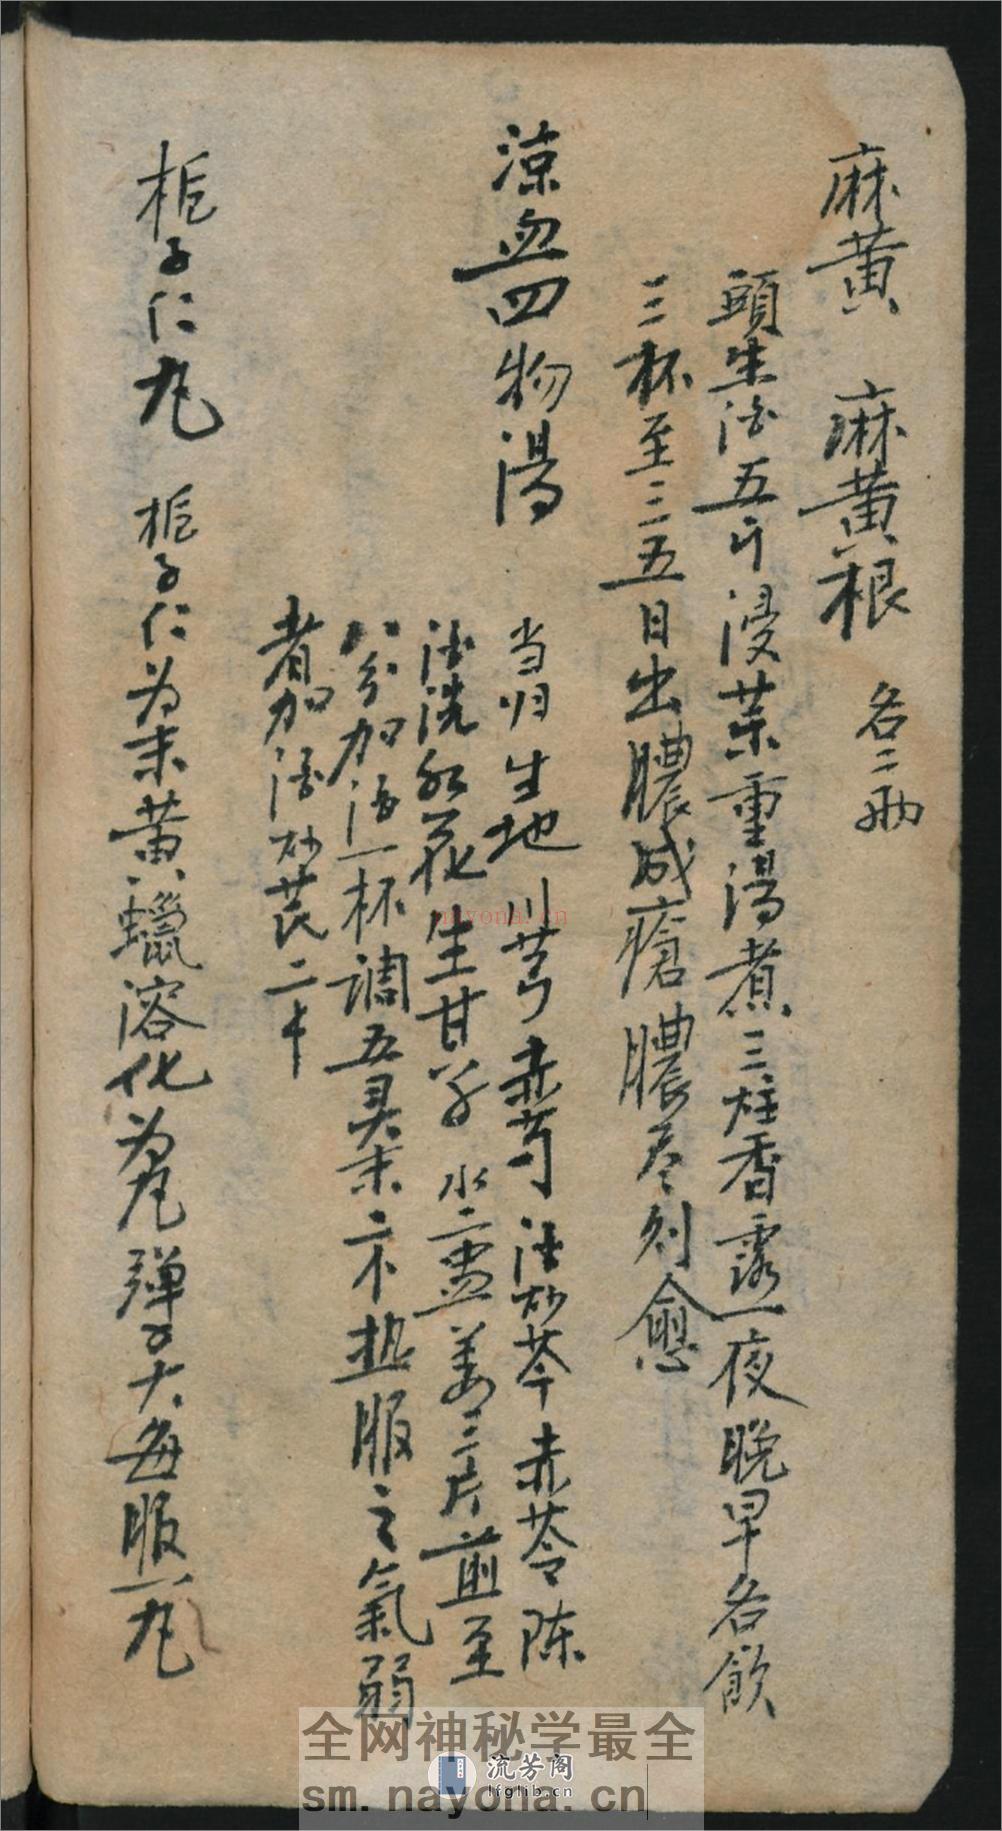 麻黄 麻黄根 各二两
頭生酒五斤浸葉重湯煮三炷香露一夜晚早各飲
三杯至三五日出膿成瘡膿尽则愈
涼血四物湯
当归 生地 川芎 赤芍 酒炒芩 赤苓 陈
酒洗红花 生甘草 水二盏姜三片煎至
八分加酒一杯調五灵末二 热服之氣弱
者加酒炒芪二
栀子仁丸 栀子仁为末黄蠟溶化为丸弹子大每服一丸
nayona.cn
全网神秘学最全
流芳阁
lfglib.cn
sm.nayona.cn